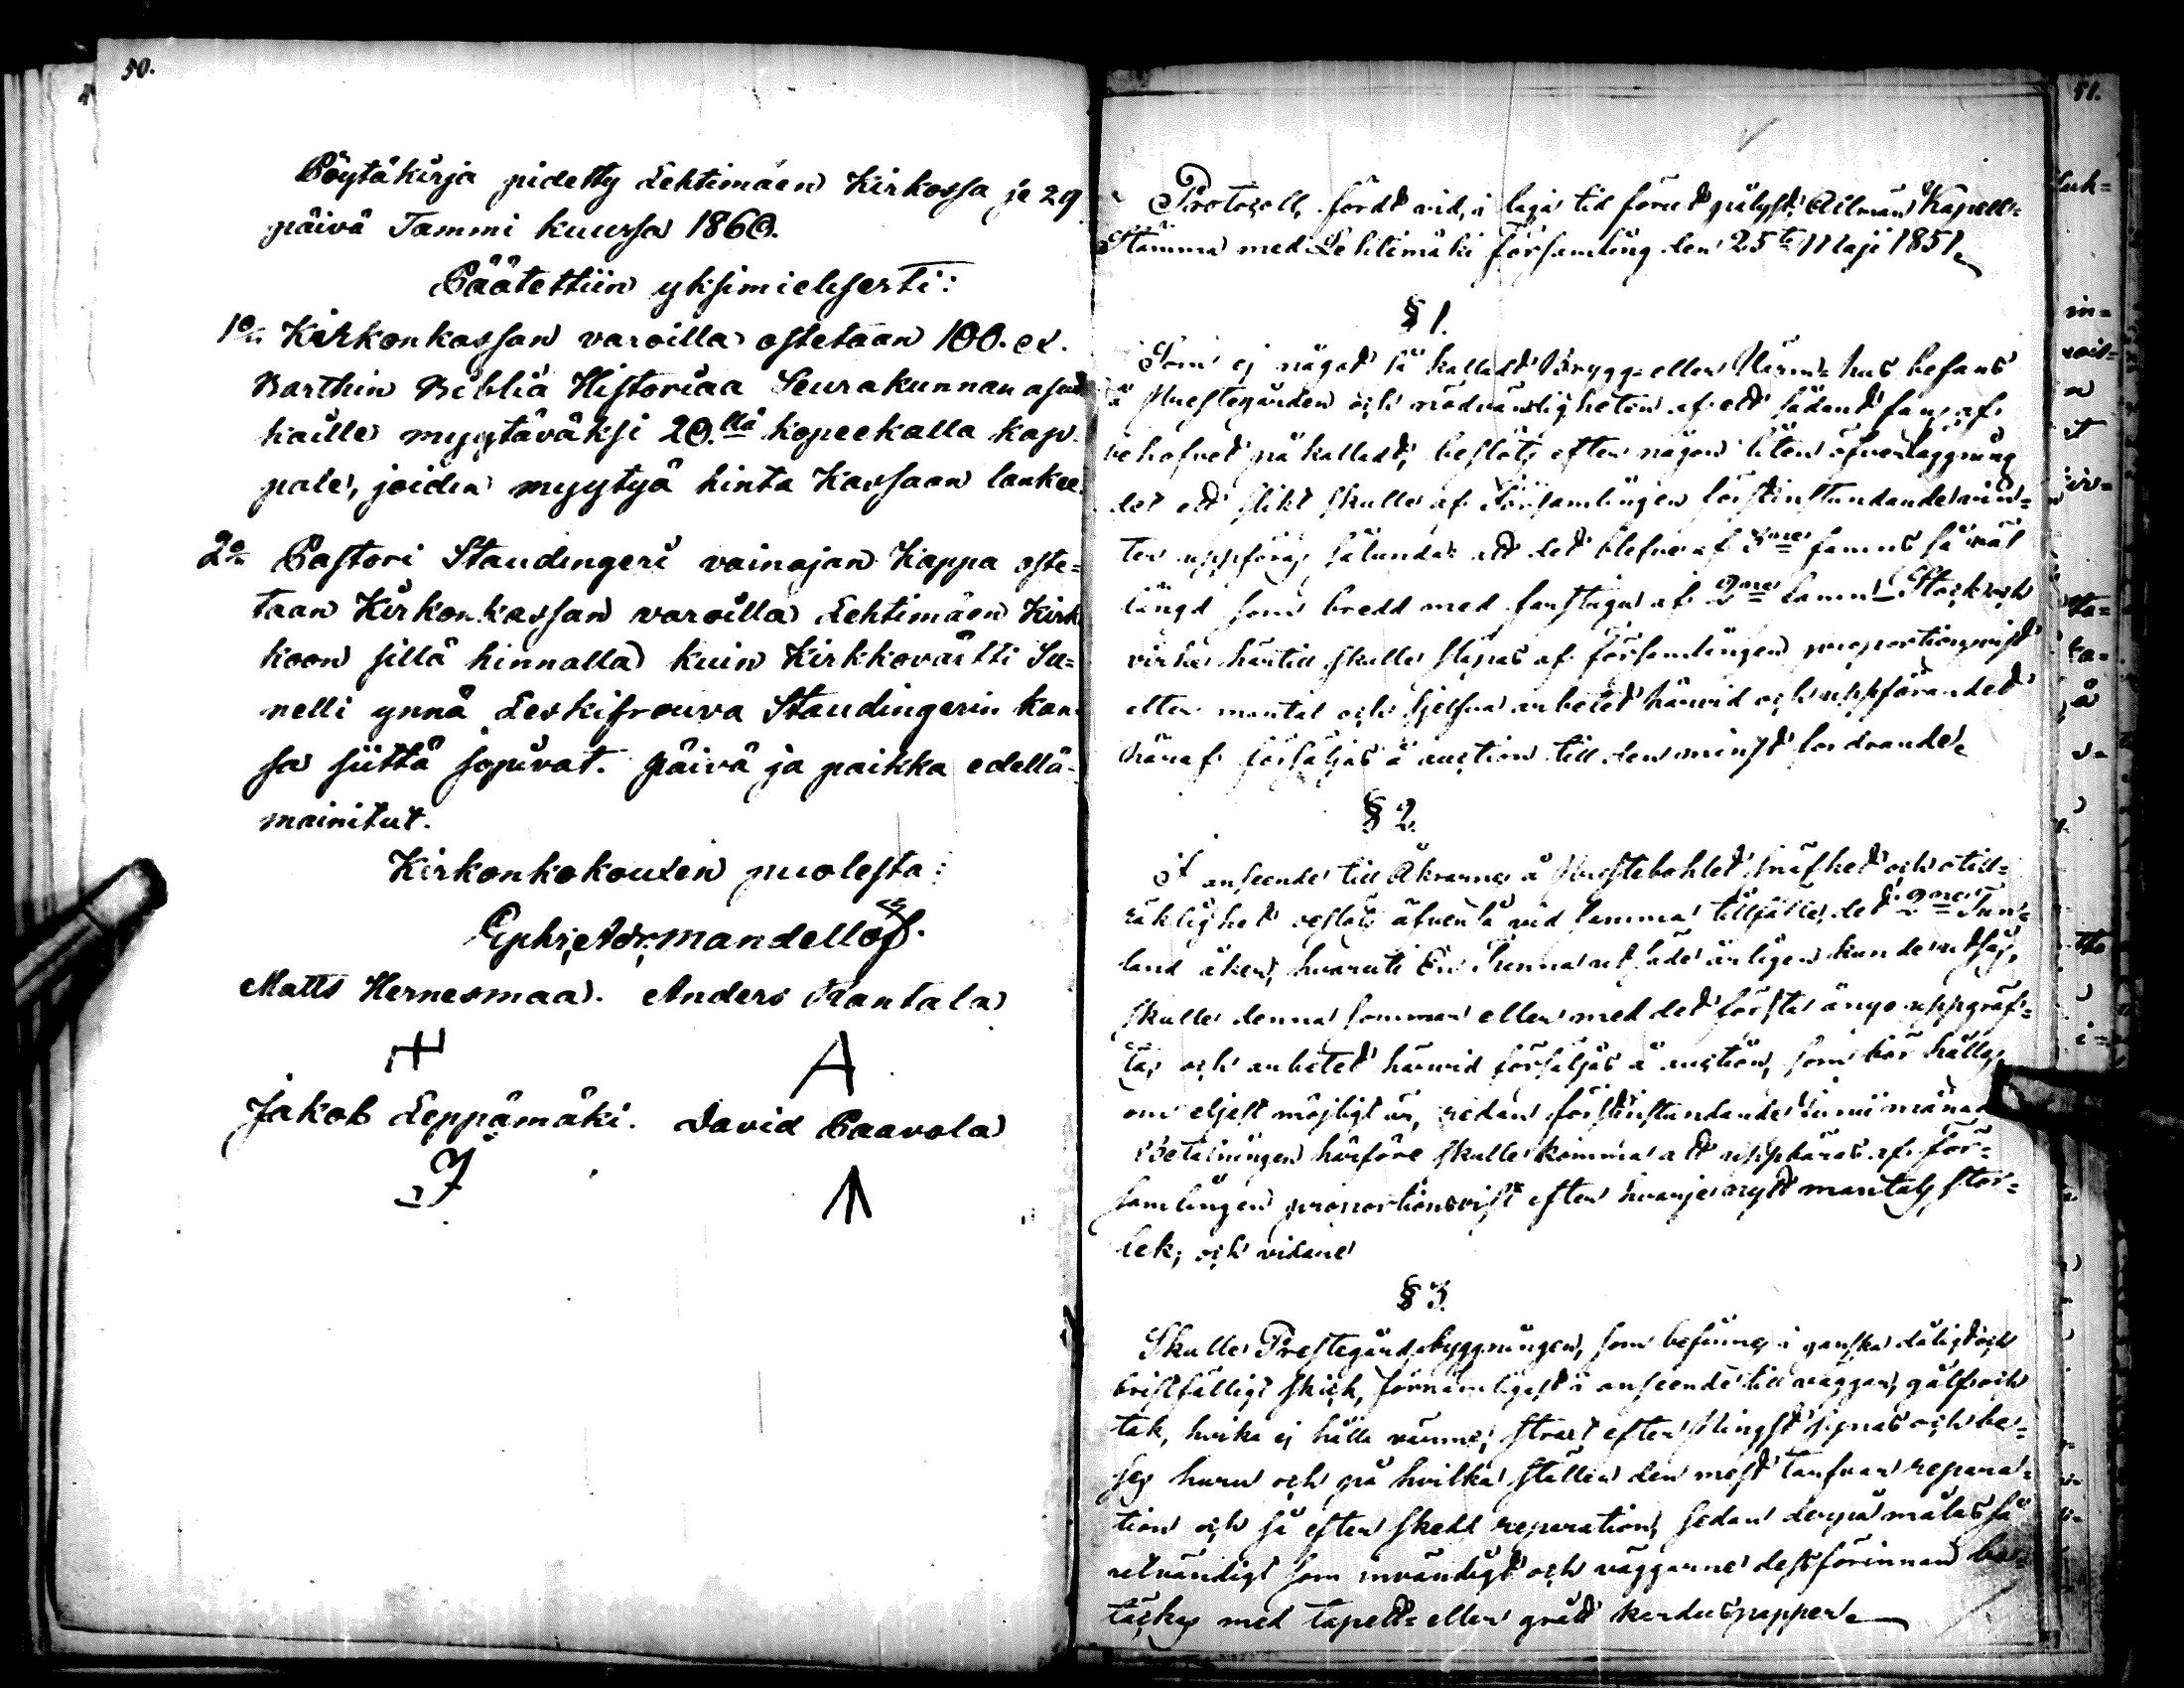 50.
Pöytäkirja pidetty Lehtimäen Kirkossa je 29
päivä Tammi kuussa 1860.
Päätettiin yksimielisesti:
1o Kirkonkassan varoilla ostetaan 100. ex.
Barthin Biblia Historiaa Seurakunnan asuk
kaille myytäväksi 20.llä kopeekalla kap-
pale, joiden myytyä hinta Kassaan lankee.
2o Pastori Staudingeri vainajan Kappa oste=
taan Kirkonkassan varoilla Lehtimäen Kirk
koon sillä hinnalla kuin Kirkkovärtti Su=
nelli ynnä Leskifrouva Staudingerin kan
sa siittä sopivat. Päivä ja paikka edellä-
mainitut.
Kirkonkokouxen puolesta:
Mandellöf.
Matts Hernesmaa. Anders Rantala
A
Jakob Leppämäki. David Paavola
51.
Protocoll, fördt vid, i laga tid förut pålyst, Allmän Kapell=
Stämma med Lehtimäki församling den 25te Maji 1851.
§ 1.
Som ej något så kalladt Brygg= eller Värm=hus befans
å Prestegården och nödvändigheten af ett sådant fans af
behofvet påkalladt, beslöts efter någon liten öfverläggning
det ett slikt skulle af Församlingen förstinstundande vin=
ter uppföras sålunda att det blefve af 3ne famns så väl
längd som bredd med farstuga af 2ne famn. Stock och
virke härtill skulle släpas af församlingen proportionsvist
efter mantal och sjelfva arbetet härvid och uppförandet
häraf försäljas å auction till den minst fordrande.
§ 2.
I anseende till Åkrarnes å Prestebohlet knaphet och otill=
räklighet beslöts äfvenså vid samma tillfälle, det 2ne Tun=
land åker, hvaruti En Tunna utsäde årligen kunde utsås,
skulle denna sommar eller med det första ånyo uppgräf=
tas och arbetet härvid försäljas å auction, som bör hållas,
om eljest möjligt är, redan förstinstundande Junii månad
Betalningen härföre skulle komma att uppbäras af för=
samlingen proportionsvist efter hvarje nytt mantals stor=
lek; och vidare
§ 3.
Skulle Prestegårdsbyggningen, som befinnes i ganska dåligt och
bristfälligt skick, förnämligast i anseende till väggar, gålf och
tak, hvilka ej hålla värme, strax efter Pingst synas och be=
ses huru och på hvilka ställen den mest tarfvar repara=
tion och så efter skedd reparation, sedan derpå målas så
utvändigt som invändigt och väggarne dessförinnan be=
täckas med tapett= eller grått karduspapper.